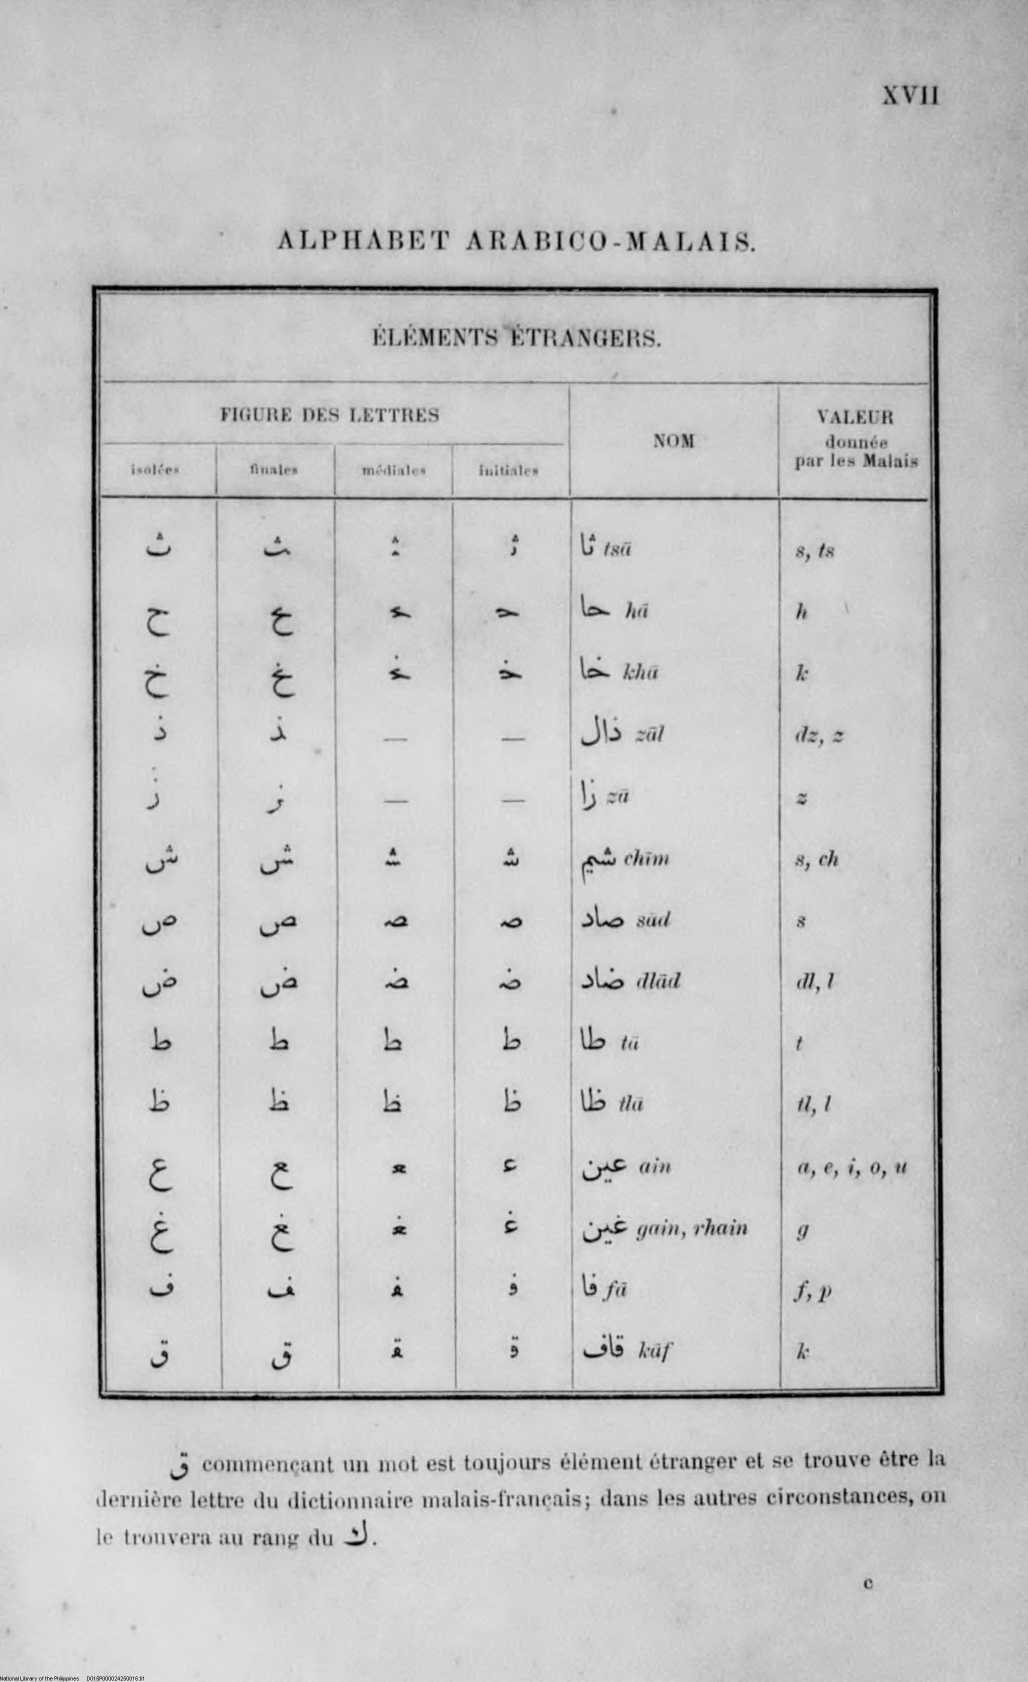 XVII
ALPHABET ARABICO-MALAIS.
ÉLÉMENTS ÉTRANGERS.
FIGURE DES LETTRES
NOM
VALEUR
donnée
par les Malais
isolées finales médiales initiales
ث ـث ـثـ ثـ ثا tsā s, ts
ح ـح ـحـ حـ حا hā h
خ ـخ ـخـ خـ خا khā k
ذ ـذ — — ذال zāl dz, z
ز ـز — — زا zā z
ش ـش ـشـ شـ شيم chīm s, ch
ص ـص ـصـ صـ صاد sād s
ض ـض ـضـ ضـ ضاد dlād dl, l
ط ـط ـطـ طـ طا tā t
ظ ـظ ـظـ ظـ ظا tlā tl, l
ع ـع ـعـ عـ عين ain a, e, i, o, u
غ ـغ ـغـ غـ غين gain, rhain g
ف ـف ـفـ فـ فا fā f, p
ق ـق ـقـ قـ قاف kāf k
ق commençant un mot est toujours élément étranger et se trouve être la
dernière lettre du dictionnaire malais-français; dans les autres circonstances, on
le trouvera au rang du ك.
c
National Library of the Philippines